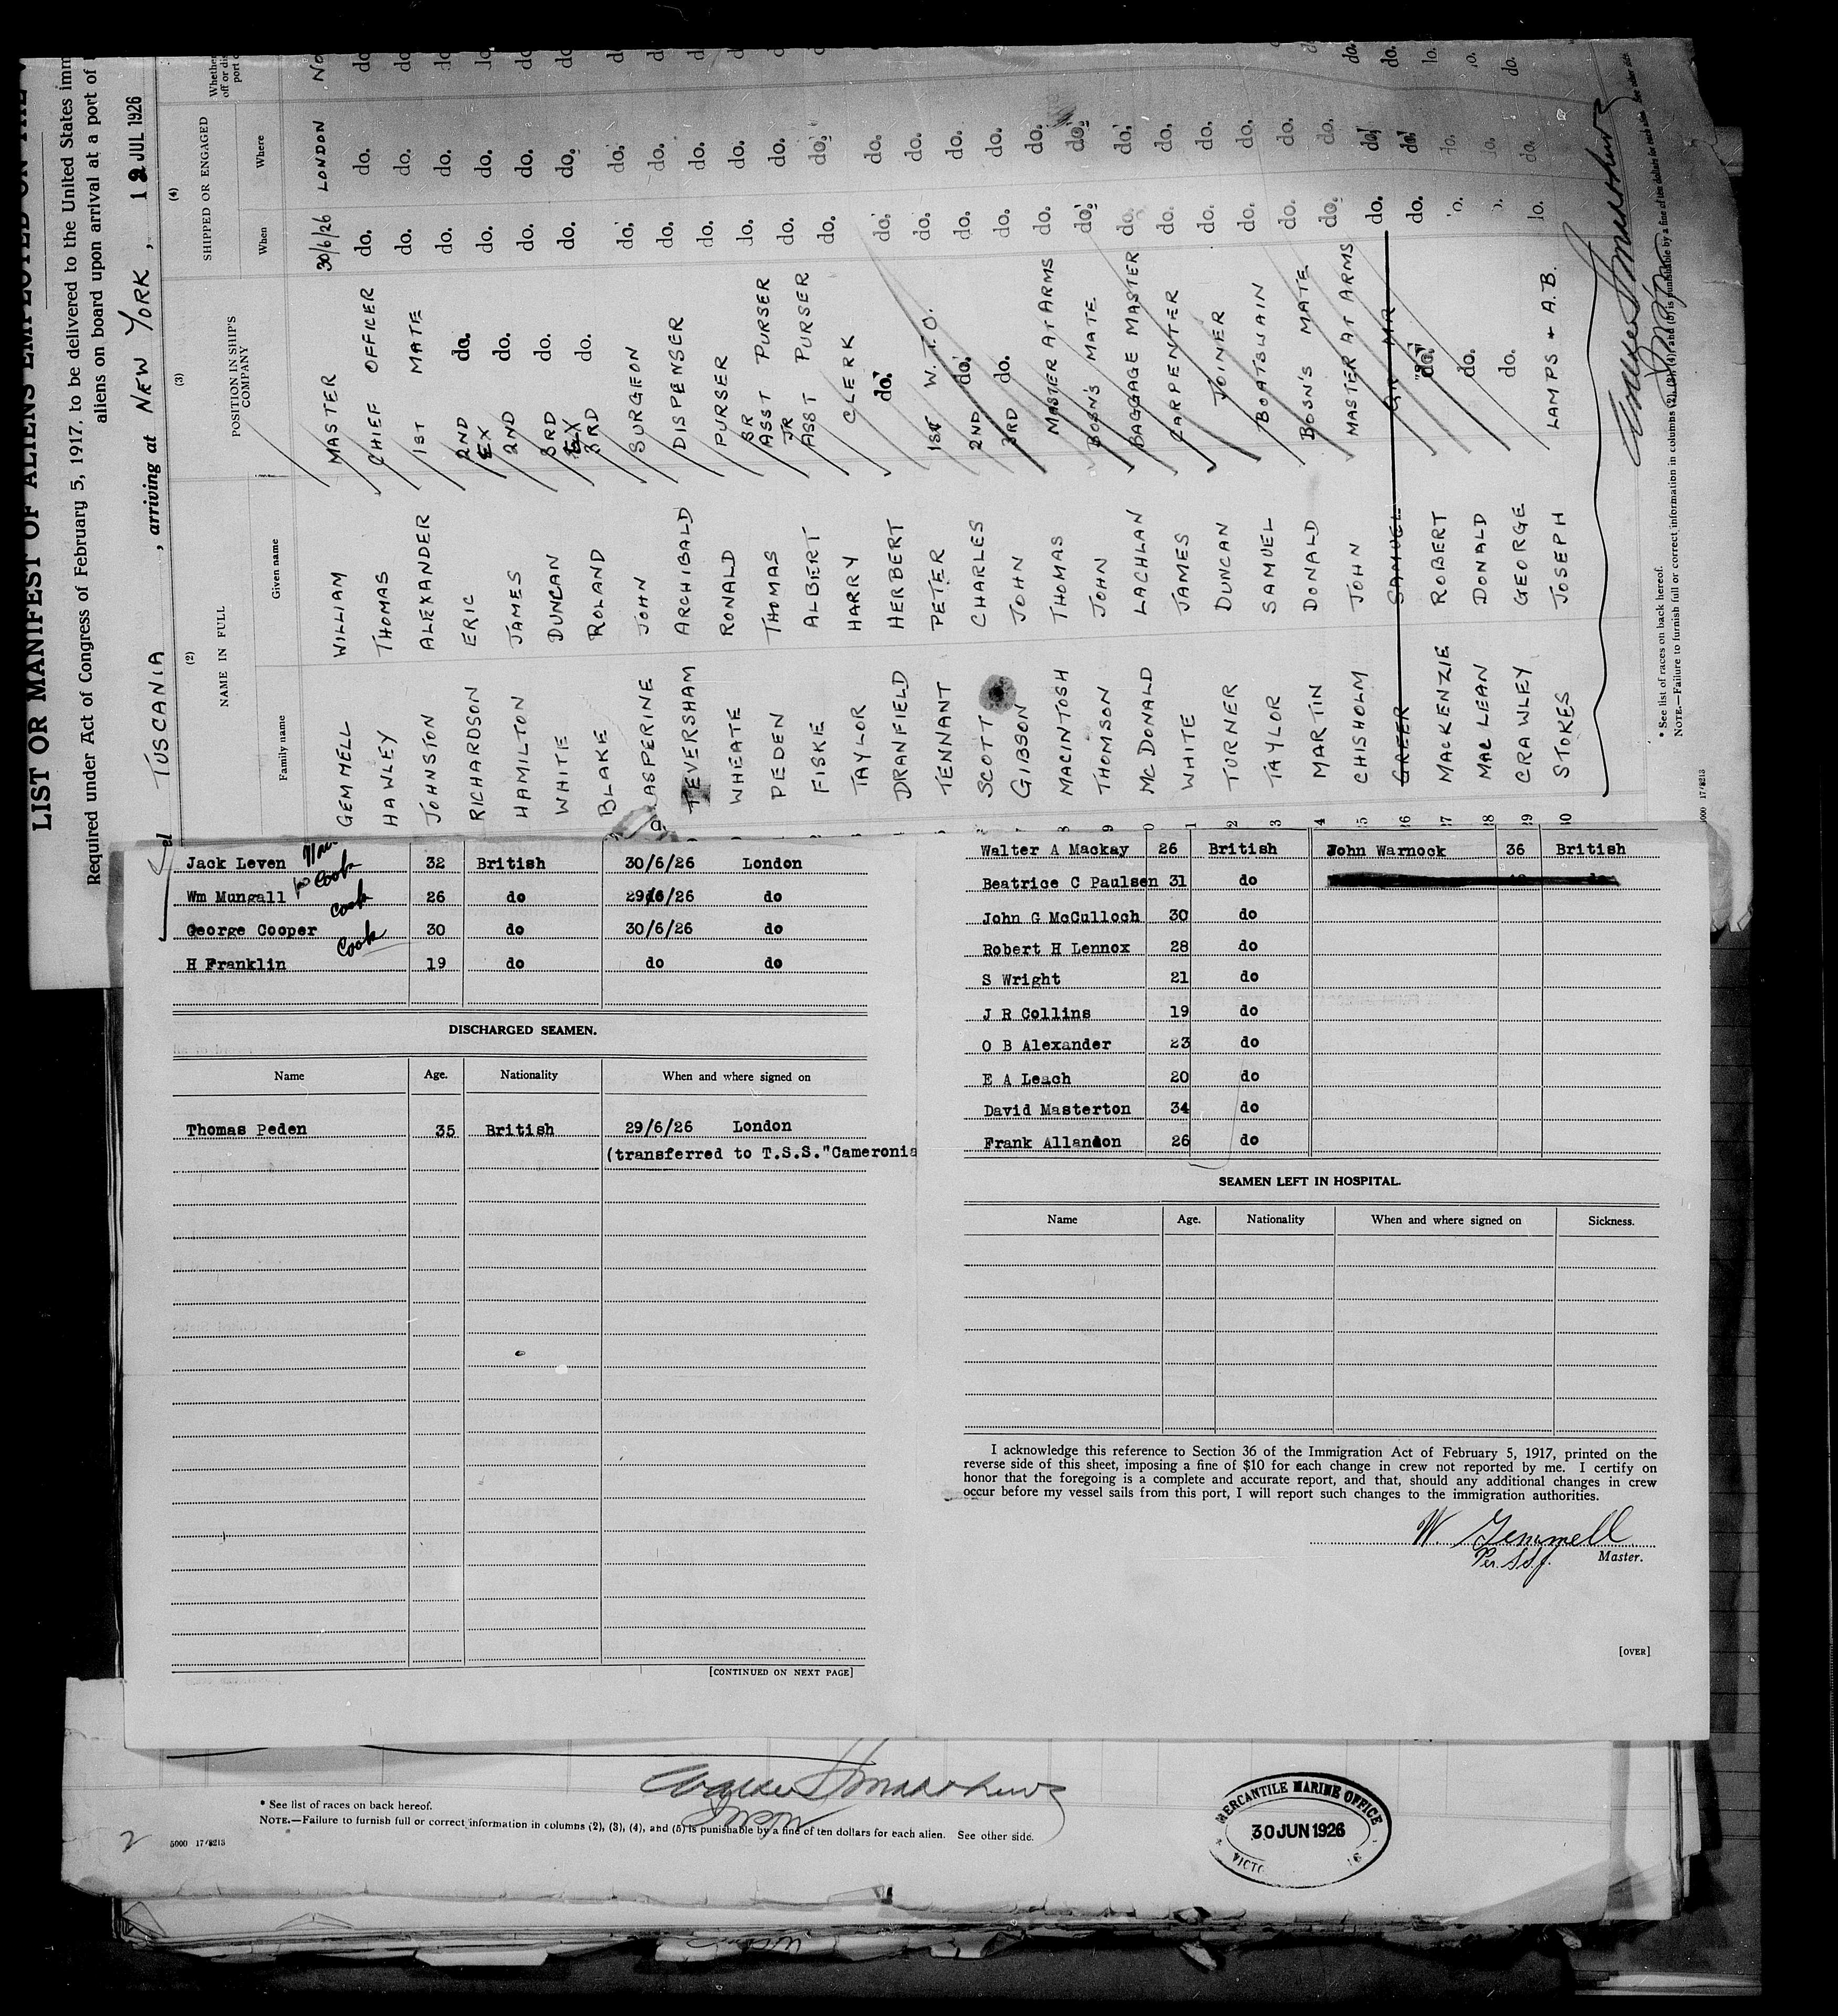 LIST OR MANIFEST OF ALIENS EMPLOYED ON THE
Required under Act of Congress of February 5, 1917, to be delivered to the United States imm
aliens on board upon arrival at a port of
TUSCANIA , arriving at NEW YORK , 12 JUL 1926
(2) (3) (4)
NAME IN FULL POSITION IN SHIP'S COMPANY SHIPPED OR ENGAGED Whether
Family name Given name When Where
GEMMELL WILLIAM MASTER 30/6/26 LONDON No
HAWLEY THOMAS CHIEF OFFICER do. do. do
JOHNSTON ALEXANDER 1ST MATE do. do. do
RICHARDSON ERIC 2ND do. do. do. do
HAMILTON JAMES EX 2ND do. do. do. do
WHITE DUNCAN 3RD do. do. do. do
BLAKE ROLAND EX 3RD do. do. do. do
JASPERINE JOHN SURGEON do. do. d
TEVERSHAM ARCHIBALD DISPENSER do. do. d
WHEATE RONALD PURSER do. do. d
PEDEN THOMAS SR ASST PURSER do. do. d
FISKE ALBERT JR ASST PURSER do. do. d
TAYLOR HARRY CLERK do. do. d
DRANFIELD HERBERT do. do. do.
TENNANT PETER 1ST W.T.O. do. do.
SCOTT CHARLES 2ND do. do. do.
GIBSON JOHN 3RD do. do. do.
MACINTOSH THOMAS MASTER AT ARMS do. do.
THOMSON JOHN BOSN'S MATE do. do.
McDONALD LACHLAN BAGGAGE MASTER do. do.
WHITE JAMES CARPENTER do. do.
TURNER DUNCAN JOINER do. do.
TAYLOR SAMUEL BOATSWAIN do. do.
MARTIN DONALD BOSN'S MATE do. do.
CHISHOLM JOHN MASTER AT ARMS do. do. do.
GREER SAMUEL QR MR do. do. do.
MACKENZIE ROBERT "do." do. do. do.
MacLEAN DONALD do. do. do. do.
CRAWLEY GEORGE do. do. do. do.
STOKES JOSEPH LAMPS & A.B.
* See list of races on back hereof.
NOTE.—Failure to furnish full or correct information in columns (2), (3), (4), and (5) is punishable by a fine of ten dollars for each alien. See other side.
5000 17/8213
Jack Leven 32 British 30/6/26 London
Wm Mungall Cook 26 do 29/6/26 do
George Cooper Cook 30 do 30/6/26 do
H Franklin Cook 19 do do do
DISCHARGED SEAMEN.
Name Age. Nationality When and where signed on
Thomas Peden 35 British 29/6/26 London
(transferred to T.S.S."Cameronia
[CONTINUED ON NEXT PAGE]
Walter A Mackay 26 British John Warnock 36 British
Beatrice C Paulsen 31 do
John G McCulloch 30 do
Robert H Lennox 28 do
S Wright 21 do
J R Collins 19 do
O B Alexander 23 do
E A Leach 20 do
David Masterton 34 do
Frank Allandon 26 do
SEAMEN LEFT IN HOSPITAL.
Name Age. Nationality When and where signed on Sickness.
I acknowledge this reference to Section 36 of the Immigration Act of February 5, 1917, printed on the
reverse side of this sheet, imposing a fine of $10 for each change in crew not reported by me. I certify on
honor that the foregoing is a complete and accurate report, and that, should any additional changes in crew
occur before my vessel sails from this port, I will report such changes to the immigration authorities.
W. Gemmell
Per Master.
[OVER]
* See list of races on back hereof.
NOTE.—Failure to furnish full or correct information in columns (2), (3), (4), and (5) is punishable by a fine of ten dollars for each alien. See other side.
2 5000 17/8213
MERCANTILE MARINE OFFICE
30 JUN 1926
VICTO